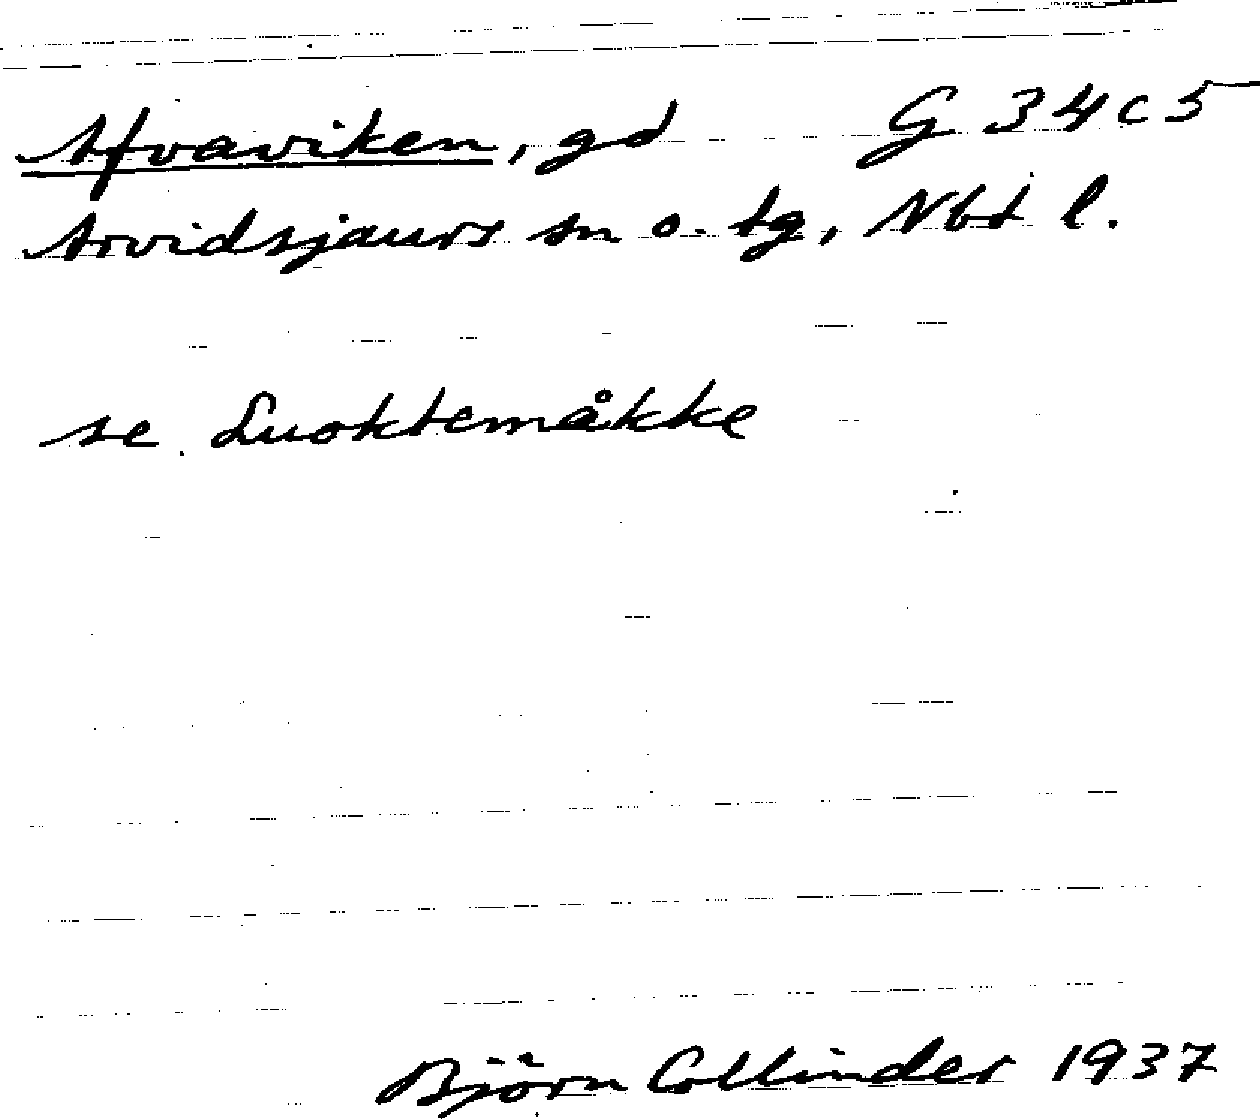 Afvaviken, gd G 34 c 5
Arvidsjaurs sn o. tg, Nbt l.
se Luoktemåkke
Björn Collinder 1937